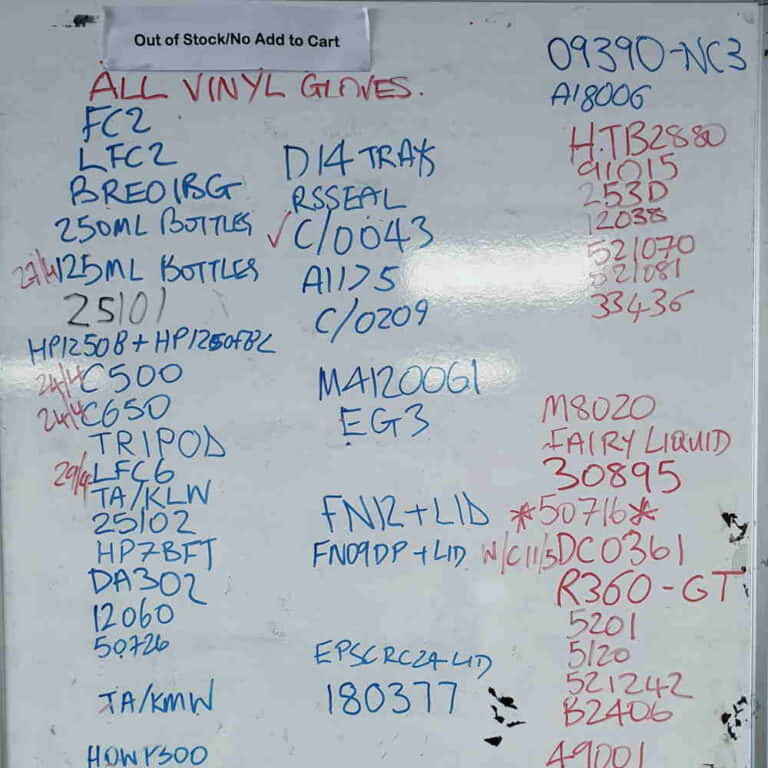 Out of Stock/No Add to Cart
ALL VINYL GLOVES.
FC2
LFC2
BREO1BG
250ML BOTTLES
27/4 125ML BOTTLES
25101
HP1250B + HP1250FBL
24/4 C500
24/4 C650
TRIPOD
29/4 LFC6
TA/KLW
25102
HP7BFT
DA302
12060
50726
TA/KMW
D14 TRAYS
RSSEAL
✓ C/0043
A1175
C/0209
M4120061
EG3
FN12 + LID
FN09DP + LID
EPSCRC24-LID
180377
09390-NC3
A18006
H.TB2880
91015
253D
12038
521070
521081
33436
M8020
FAIRY LIQUID
30895
*50716*
W/C 11/5 DC0361
R360-GT
5201
5120
521242
B2406